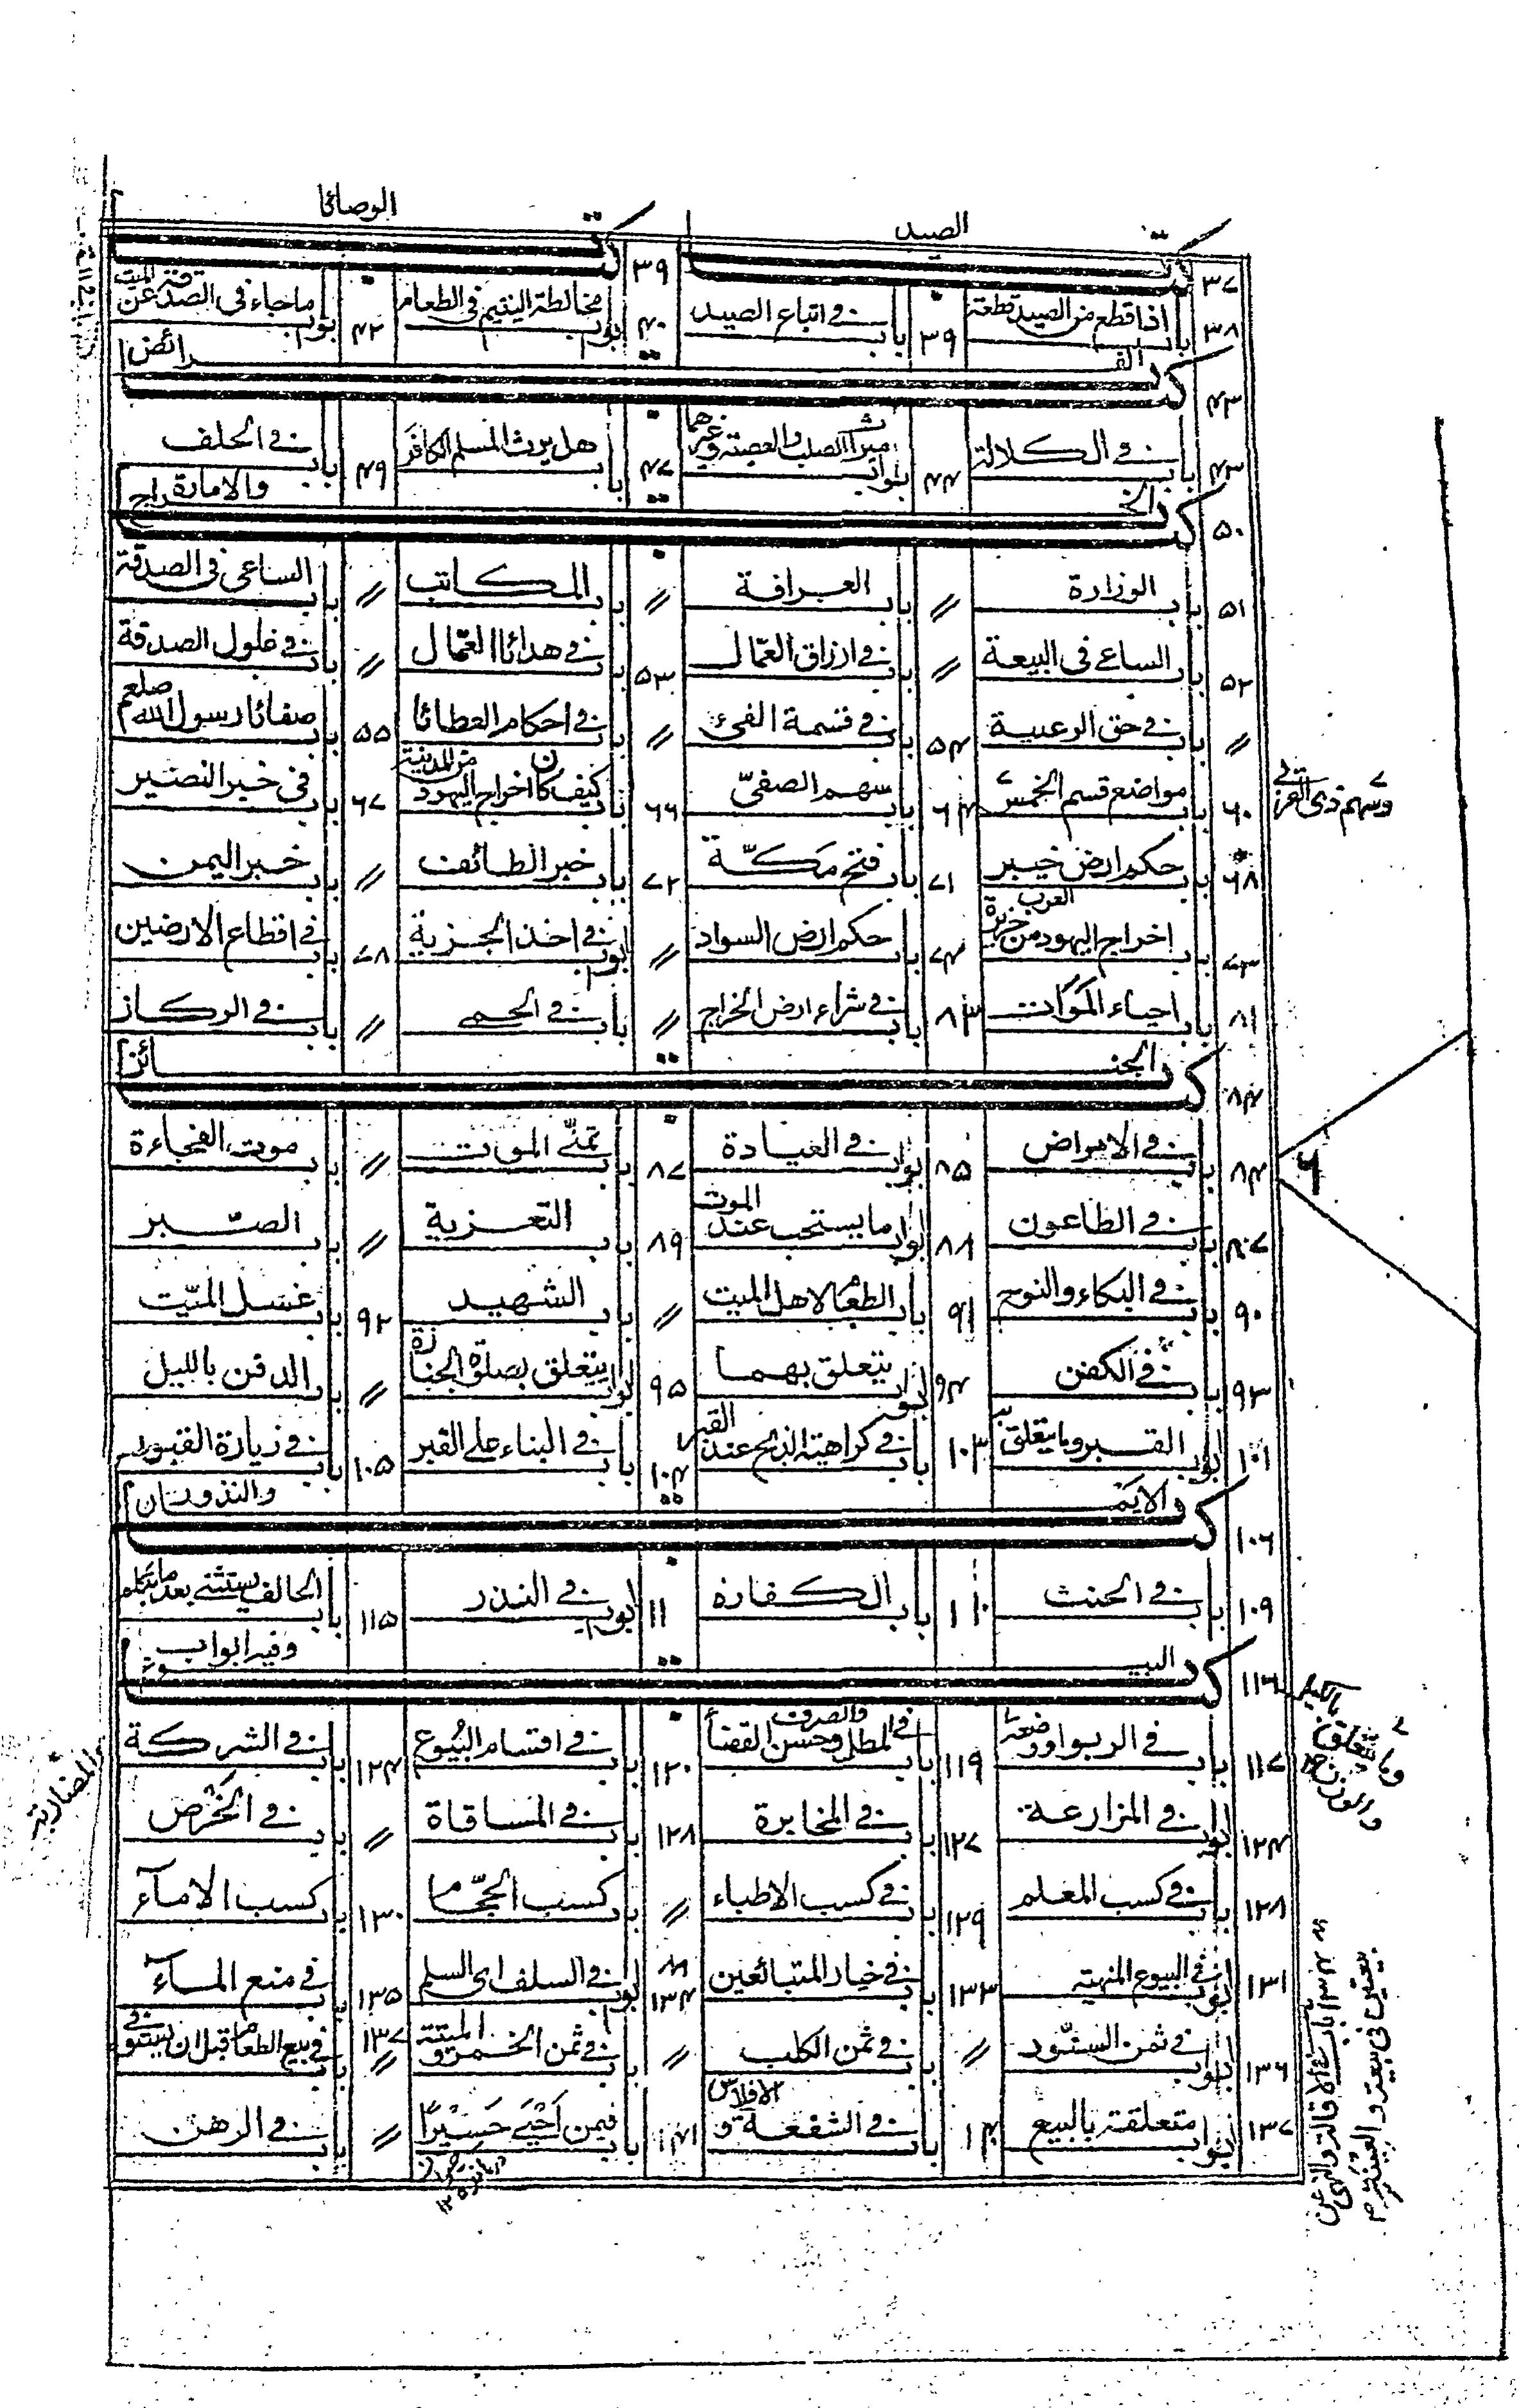 كتاب الصيد ٣٧ كتاب الوصايا ٣٩
٣٨ باب اذا قطع من الصيد قطعة ٣٩ باب في اتباع الصيد ٤٠ ابواب مخالطة اليتيم في الطعام ٤٢ ابواب ماجاء في الصدقة عن الميت
٤٣ كتاب الفرائض
٤٣ باب في الكلالة ٤٤ ابواب ميراث الصلب والعصبة وغيرهما ٤٧ باب هل يرث المسلم الكافر ٤٩ باب في الحلف
٥٠ كتاب الخراج والامارة
٥١ باب الوزارة // باب العرافة // باب المكاتب // باب الساعي في الصدقة
٥٢ باب الساعي في البيعة // باب في ارزاق العمّال ٥٣ باب في هدايا العمّال // باب في غلول الصدقة
// باب في حق الرعية ٥٤ باب في قسمة الفيء // باب في احكام العطايا ٥٥ باب صفايا رسول الله صلعم
٦٠ باب مواضع قسم الخمس وسهم ذي القربى ٦٤ باب سهم الصفيّ ٦٦ باب كيف كان اخراج اليهود من المدينة ٦٧ باب في خبر النضير
٦٨ باب حكم ارض خيبر ٧١ باب فتح مكّة ٧٢ باب خبر الطائف // باب خبر اليمن
٧٣ باب اخراج اليهود من جزيرة العرب ٧٤ باب حكم ارض السواد // ابواب في اخذ الجزية ٧٨ باب في اقطاع الارضين
٨١ باب احياء الموات ٨٣ باب في شراء ارض الخراج // باب في الحمى // باب في الركاز
٨٤ كتاب الجنائز
٨٤ باب في الامراض ٨٥ ابواب في العيادة ٨٧ باب تمنّي الموت // باب موت الفجاءة
٨٧ باب في الطاعون ٨٨ ابواب ما يستحب عند الموت ٨٩ باب التعزية // باب الصبر
٩٠ باب في البكاء والنوح ٩١ باب الطعام لاهل الميت // باب الشهيد ٩٢ باب غسل الميّت
٩٣ باب في الكفن ٩٤ ابواب يتعلق بهما ٩٥ ابواب يتعلق بصلوة الجنازة // باب الدفن بالليل
١٠١ ابواب القبر وما يتعلق به ١٠٣ باب في كراهية الذبح عند القبر ١٠٤ باب في البناء على القبر ١٠٥ باب في زيارة القبور
١٠٦ كتاب الايمان والنذور
١٠٩ باب في الحنث ١١٠ باب الكفارة ١١ ابواب في النذر ١١٥ باب الحالف يستثني بعد ما يتكلم
١١٦ كتاب البيوع وفيه ابواب
١١٧ باب في الربوا ووضعه ١١٩ باب في المطل وحسن القضاء والصرف ١٢٠ باب في اقسام البُيوع ١٢٤ باب في الشركة والمضاربة
وما يتعلق بالكيل والوزن
١٢٤ ابواب في المزارعة ١٢٧ باب في المخابرة ١٢٨ باب في المساقاة // باب في الخَرْص
١٢٨ باب في كسب المعلم ١٢٩ باب في كسب الاطباء // باب كسب الحجّام ١٣٠ باب كسب الامآء
١٣١ ابواب في البيوع المنهية ١٣٣ باب في خيار المتبائعين ١٣٤ ابواب في السلف اى السلم ١٣٥ باب في منع المآء
١٣٤ باب في الاقالة والنهي عن بيعتين في بيعة والعينة
١٣٦ ابواب في ثمن السنّور // باب في ثمن الكلب // باب في ثمن الخمر والميتة ١٣٧ // باب في بيع الطعام قبل ان يستوفى
١٣٧ ابواب متعلقة بالبيع ١٤ باب في الشفعة والافلاس ١٤١ باب فيمن اَحْيٰى حَسِيْرًا // باب في الرهن
٦